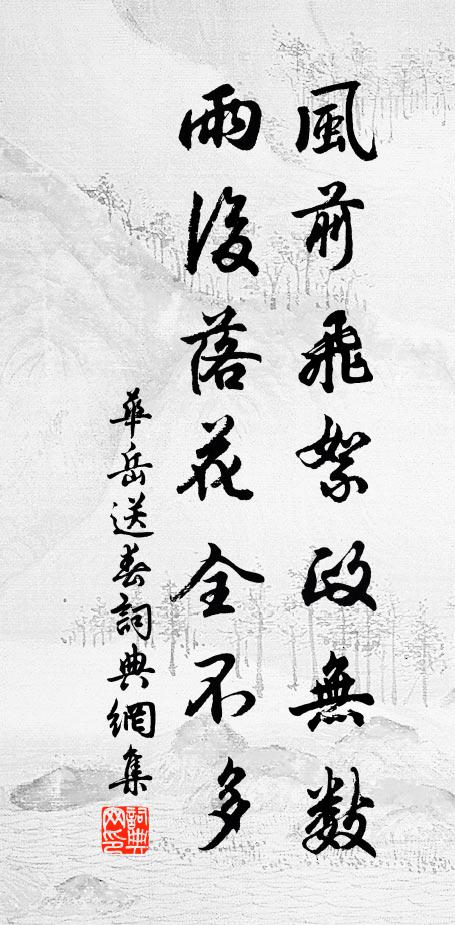 風前飛絮政無數
雨後落花全不多
華岳送春詞典網集
詞典网印